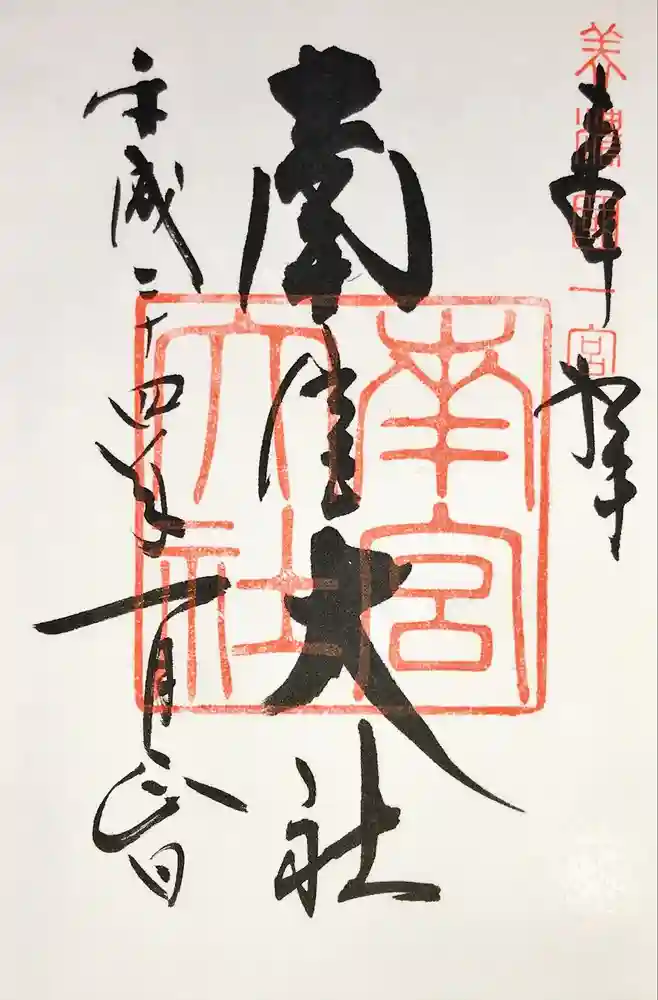 美濃國一宮
奉拝
南宮大社
南宮大社
平成二十四年一月六日